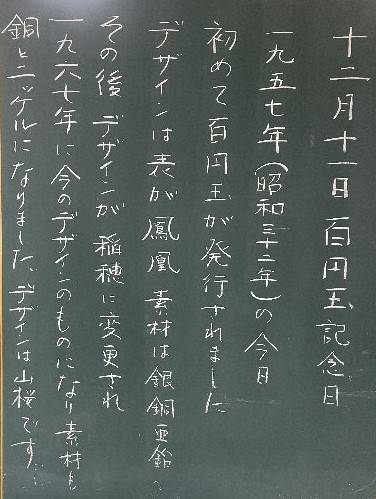 十二月十一日百円玉記念日
一九五七年(昭和三十二年)の今日
初めて百円玉が発行されました
デザインは表が鳳凰 素材は銀銅亜鉛…
その後 デザインが 稲穂に変更され
一九六七年に今のデザインのものになり素材も
銅とニッケルになりました。デザインは山桜です…